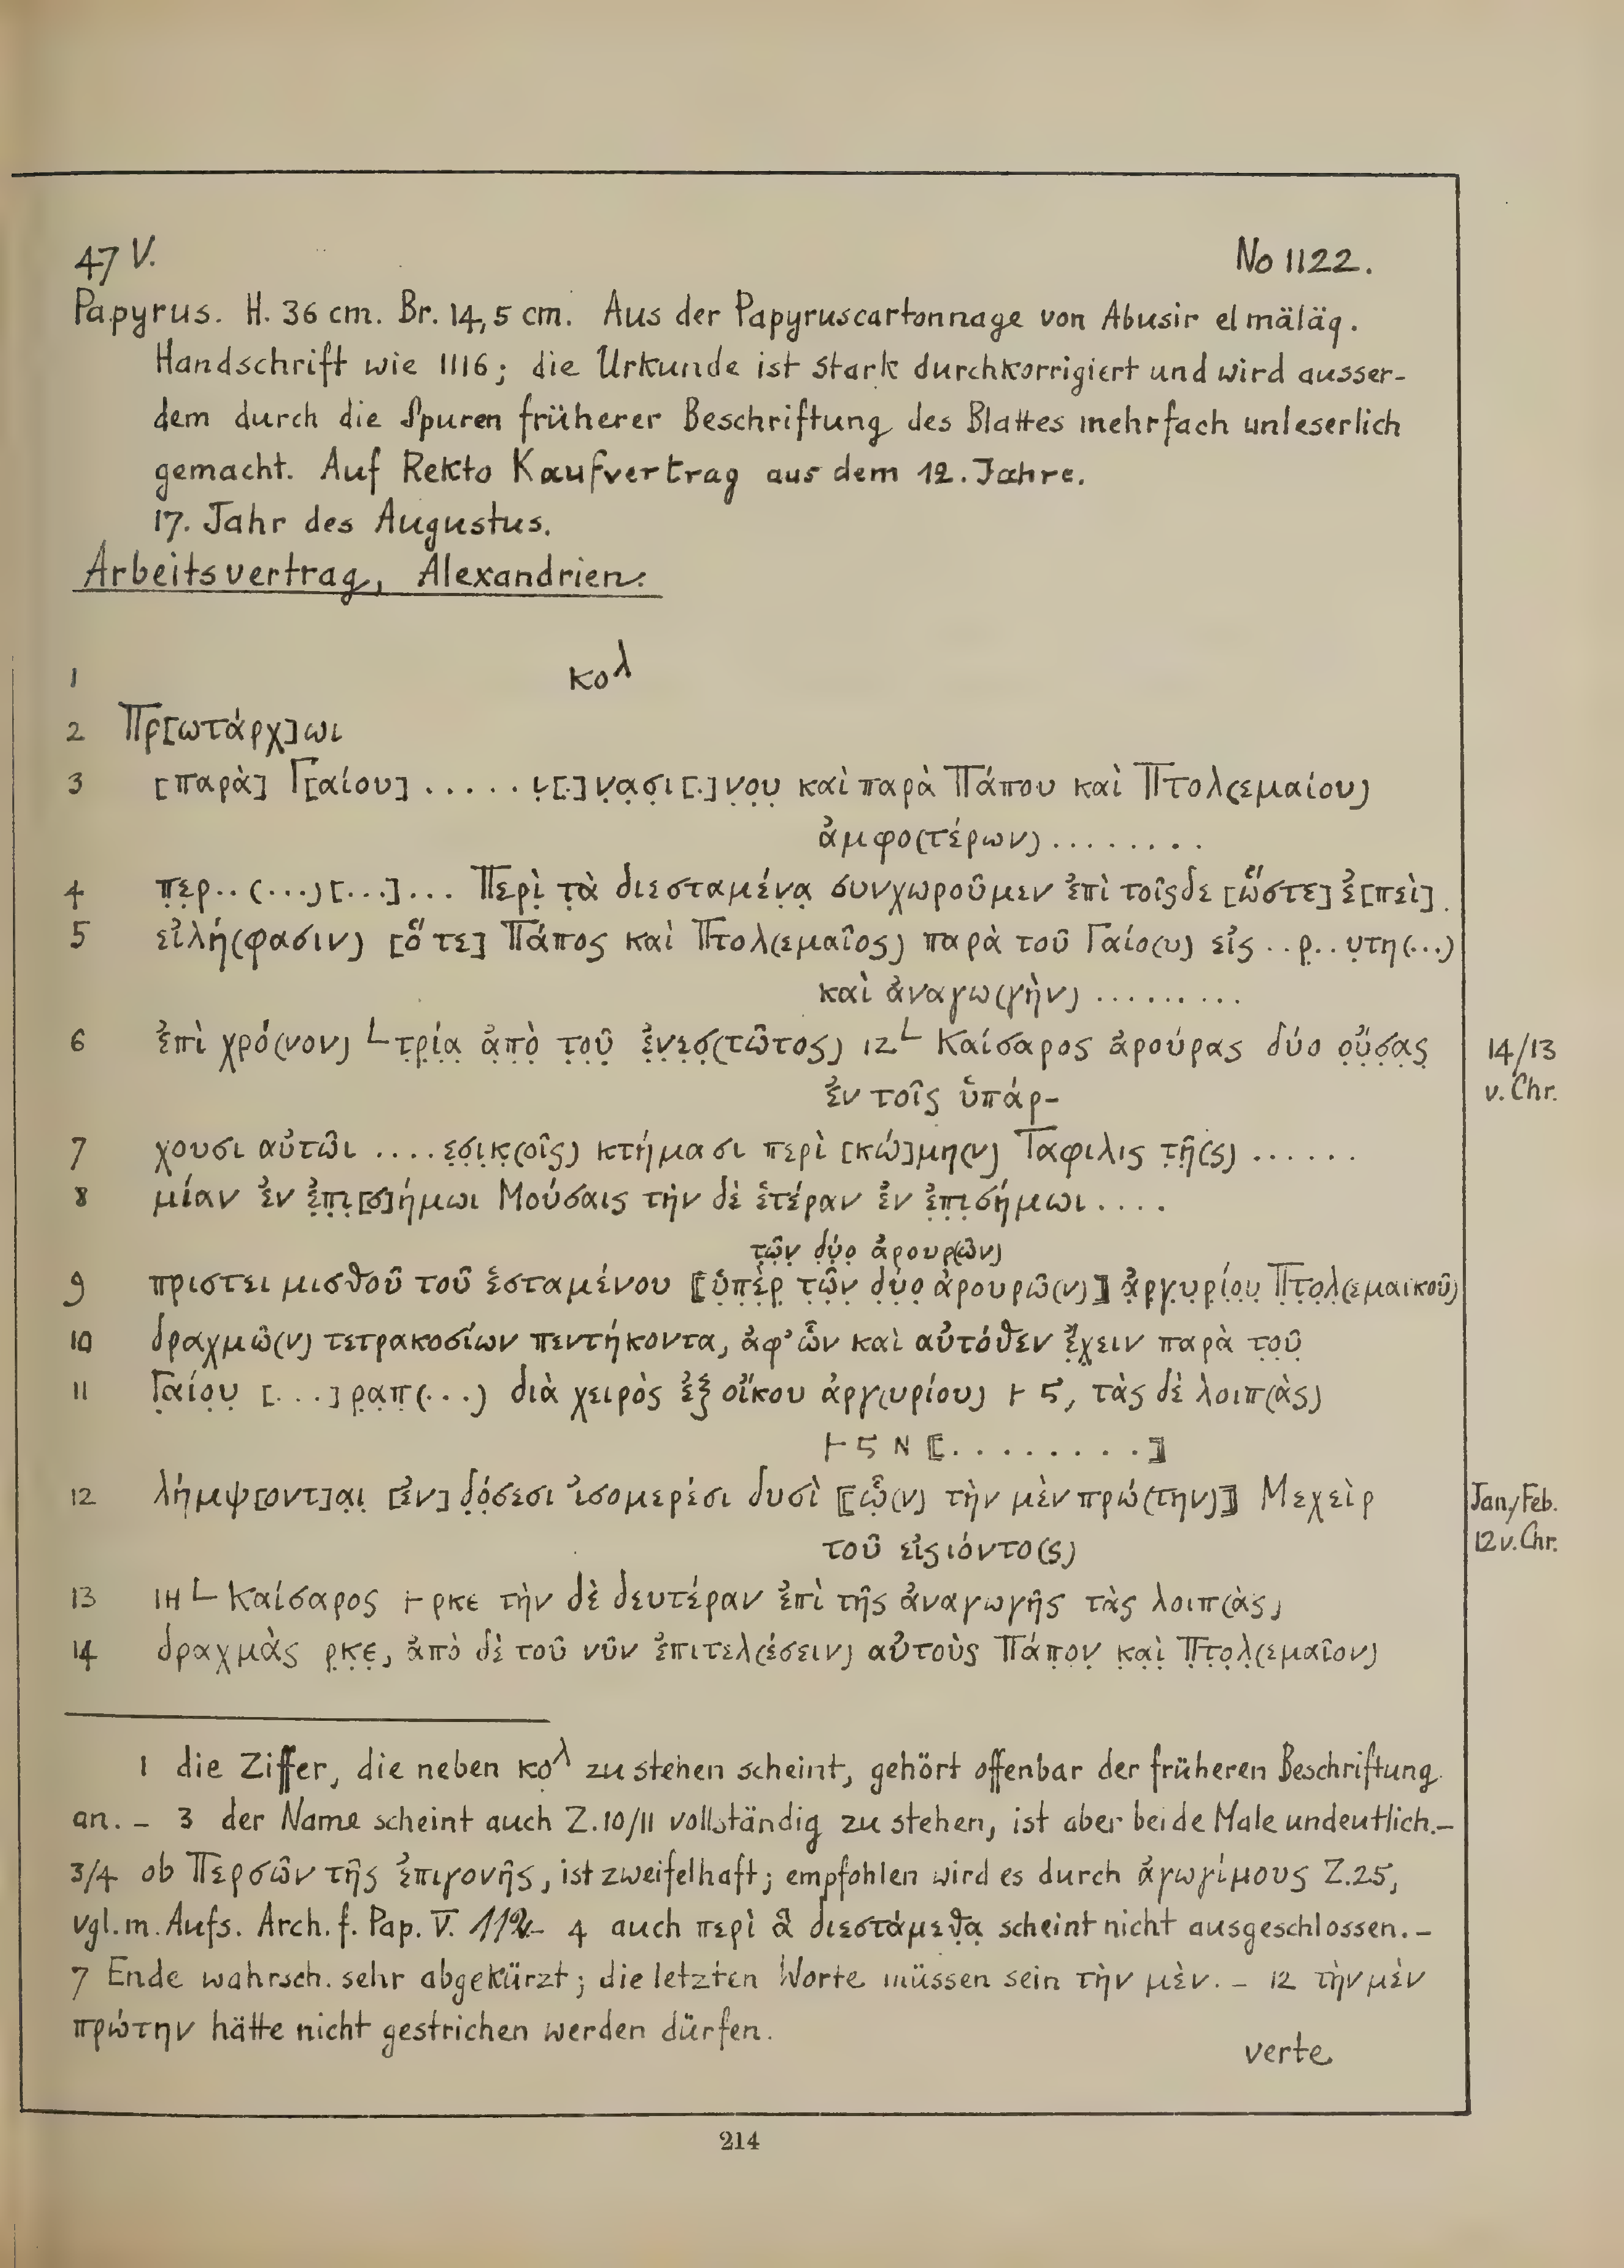 47 V. No 1122.
Papyrus. H. 36 cm. Br. 14,5 cm. Aus der Papyruscartonnage von Abusir el mäläq.
Handschrift wie 1116; die Urkunde ist stark durchkorrigiert und wird ausser-
dem durch die Spuren früherer Beschriftung des Blattes mehrfach unleserlich
gemacht. Auf Rekto Kaufvertrag aus dem 12. Jahre.
17. Jahr des Augustus.
Arbeitsvertrag, Alexandrien.
1 κολ
2 Πρ̣[ωτάρχ]ωι
3 [παρὰ] Γ[αίου] ..... ι̣[.]ν̣α̣σ̣ι[.]ν̣ο̣υ̣ καὶ παρὰ Πάπου καὶ Πτολ(εμαίου)
ἀμφο(τέρων) ........
4 π̣ε̣ρ..(...)[...]... Περὶ̣ τ̣ὰ διεσταμέν̣α̣ συνχωροῦμεν ἐπὶ τοῖςδε [ὥστε] ἐ[πεὶ].
5 εἰλή(φασιν) [ὅ τε] Πάπος καὶ Πτολ(εμαῖος) παρὰ τοῦ Γαίο(υ) εἰς ..ρ̣..υ̣τη(...)
καὶ ἀναγω(γὴν) .........
6 ἐπὶ χρό(νον) └ τ̣ρ̣ί̣α̣ ἀ̣π̣ὸ̣ τ̣ο̣ῦ̣ ἐ̣ν̣ε̣σ̣(τῶτος) ιζ └ Καίσαρος ἀρούρας δύο ο̣ὔ̣σ̣α̣ς̣ 14/13
v. Chr.
ἐν τοῖς ὑπάρ-
7 χουσι αὐτῶι ....ε̣σ̣ι̣κ̣(οῖς) κτήμασι περὶ [κώ]μη(ν) Ταφιλις τ̣ῆ̣(ς) ......
8 μίαν ἐν ἐ̣π̣ι̣[σ]ήμωι Μούσαις τὴν δὲ ἑτέραν ἐν ἐ̣π̣ι̣σήμωι ....
τ̣ῶ̣ν̣ δ̣ύ̣ο̣ ἀρουρ(ῶν)
9 πριστει μισθοῦ τοῦ ἑσταμένου ⟦ὑ̣π̣έ̣ρ̣ τ̣ῶ̣ν̣ δ̣ύ̣ο̣ ἀρουρῶ(ν)⟧ ἀ̣ρ̣γ̣υ̣ρ̣ί̣ο̣υ̣ Π̣τ̣ο̣λ̣(εμαικοῦ)
10 δραχμῶ(ν) τετρακοσίων πεντήκοντα, ἀφ’ ὧν καὶ αὐτόθεν ἔ̣χ̣ειν παρὰ τ̣ο̣ῦ̣
11 Γ̣αίο̣υ̣ [...]ρ̣α̣π̣(...) διὰ χειρὸς ἐξ οἴκου ἀργ(υρίου) ⊢ Ϛ, τὰς δὲ λοιπ(ὰς)
⊢ Ϛ Ν ⟦........⟧
12 λήμψ[οντ]α̣ι̣ [ἐν] δ̣ό̣σ̣εσι ἰσομερέσι δυσὶ ⟦ὧ̣(ν) τὴν μὲν πρώ(την)⟧ Μεχεὶρ Jan./Feb.
12 v. Chr.
τοῦ εἰςιόντο(ς)
13 ιη └ Καίσαρος ⊢ ρκε τὴν δὲ δευτέραν ἐπὶ τῆς ἀναγωγῆς τὰς λοιπ(ὰς)
14 δραχμὰς ρ̣κ̣ε̣, ἀπὸ δὲ τοῦ νῦν ἐπιτελ(έσειν) αὐτοὺς Πάπ̣ο̣ν̣ κ̣α̣ὶ̣ Π̣τ̣ο̣λ̣(εμαῖον)
1 die Ziffer, die neben κολ zu stehen scheint, gehört offenbar der früheren Beschriftung
an. – 3 der Name scheint auch Z. 10/11 vollständig zu stehen, ist aber beide Male undeutlich. –
3/4 ob Περσῶν τῆς ἐπιγονῆς, ist zweifelhaft; empfohlen wird es durch ἀγωγίμους Z. 25,
vgl. m. Aufs. Arch. f. Pap. V. – 4 auch περὶ ἃ διεστάμεθ̣α̣ scheint nicht ausgeschlossen. –
7 Ende wahrsch. sehr abgekürzt; die letzten Worte müssen sein τὴν μὲν. – 12 τὴν μὲν
πρώτην hätte nicht gestrichen werden dürfen.
verte
214